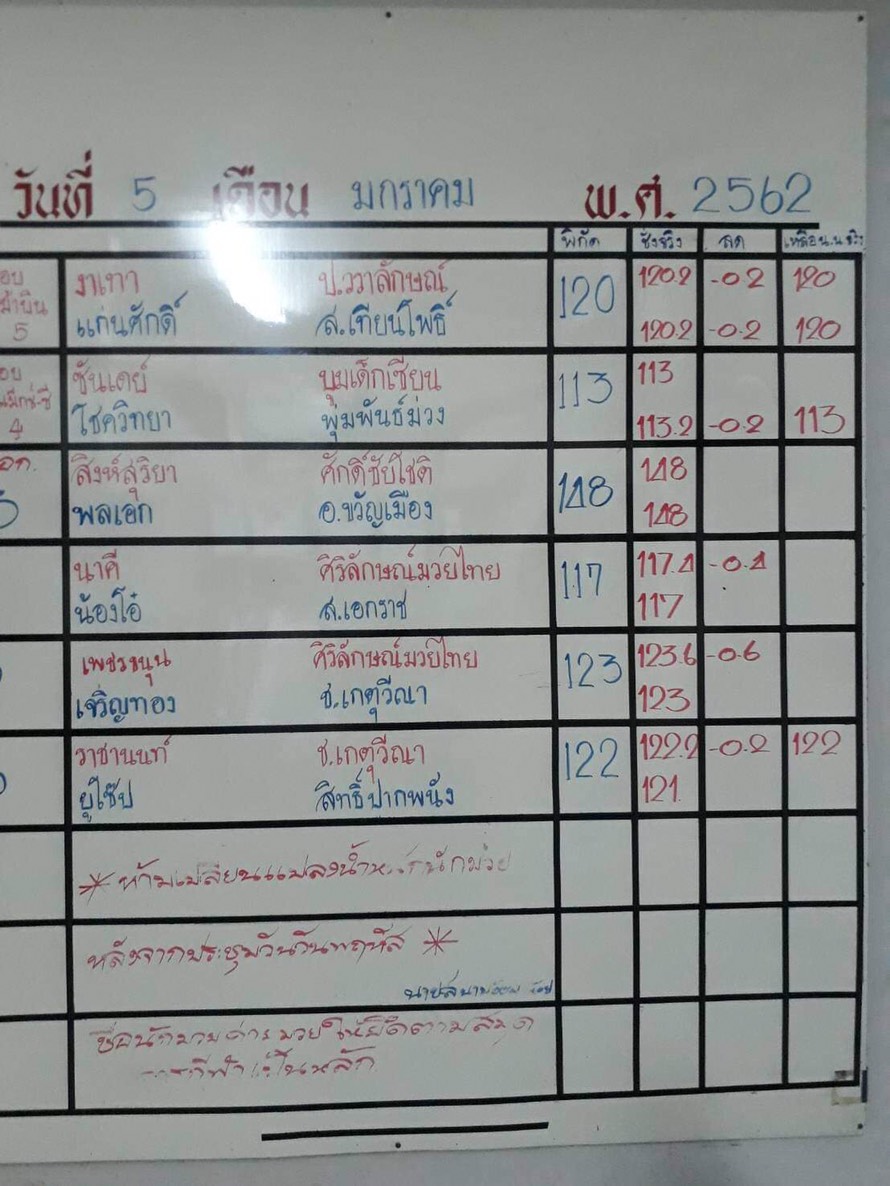 วันที่ 5 เดือน มกราคม พ.ศ. 2562
พิกัด ชั่งจริง ลด
อบ งาเทา ป.วราลักษณ์ 120 120.2 -0.2 120
5 แก่นศักดิ์ ส.เทียนโพธิ์ 120.2 -0.2 120
อบ ซันเดย์ บูมเด็กเซียน 113 113
4 โชควิทยา พุ่มพันธ์ม่วง 113.2 -0.2 113
สิงห์สุริยา ศักดิ์ชัยโชติ 148 148
พลเอก อ.ขวัญเมือง 148
นาคี ศิริลักษณ์มวยไทย 117 117.4 -0.4
น้องโอ๋ ส.เอกราช 117
เพชรขนุน ศิริลักษณ์มวยไทย 123 123.6 -0.6
เจริญทอง ช.เกตุวีณา 123
ราชานนท์ ช.เกตุวีณา 122 122.2 -0.2 122
ยูโช๊ป สิทธิ์ปากพนัง 121
* ห้ามเปลี่ยนแปลงน้ำหนักนักมวย
หลังจากประชุมวันวันพฤหัส *
นายสนาม
ชื่อนักมวย ค่ายมวยให้ยึดตามสมุด
เป็นหลัก